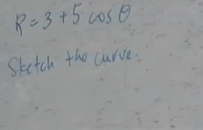 R = 3 + 5 cos θ
Sketch the curve.